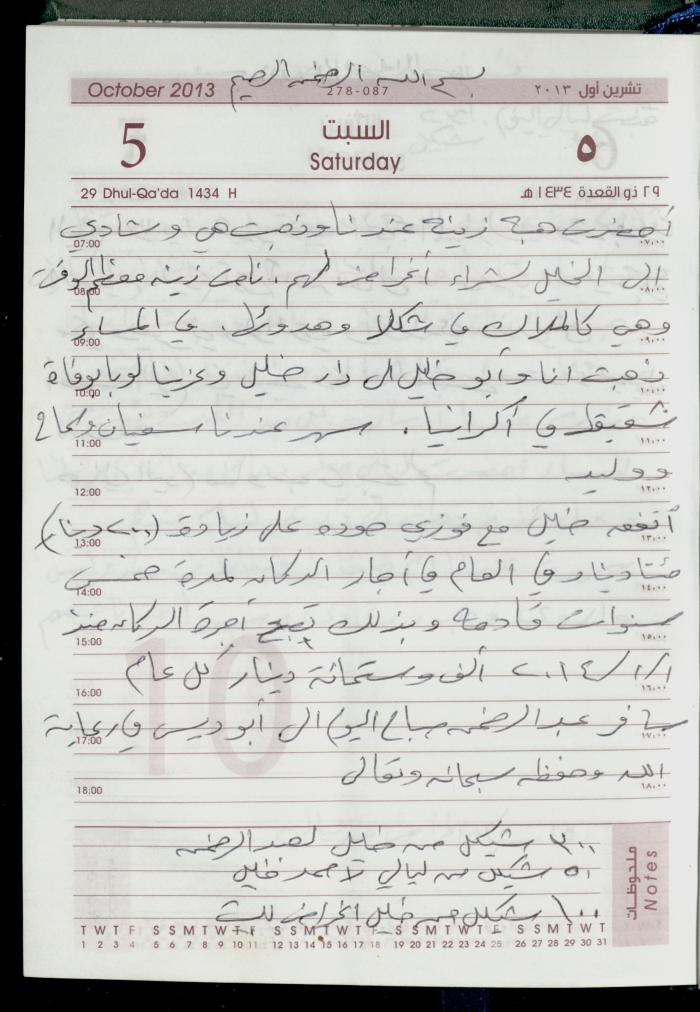 بسم الله الرحمن الرحيم
October 2013 278-087 تشرين أول ٢٠١٣
5 السبت ٥
Saturday
29 Dhul-Qa'da 1434 H ٢٩ ذو القعدة ١٤٣٤ هـ
أحضرت هبة زينة عندنا وذهبت هي وشادي
07:00 ٠٧,٠٠
الى الخليل لشراء أغراض لهم. نامت زينه معظم الوقت
08:00 ٠٨,٠٠
وهي كالملاك في شكلا وهدوئها. في المساء
09:00 ٠٩,٠٠
ذهبت انا وأبو خليل الى دار خليل وعزينا لوبا بوفاة
10:00 ١٠,٠٠
شقيقها في أكرانيا. سهر عندنا سفيان و
11:00 ١١,٠٠
ووليد
12:00 ١٢,٠٠
أتفق خليل مع فوزي حوده على زيادة (٢٠٠ دينار)
13:00 ١٣,٠٠
مئتا دينار في العام في أجار الدكان لمدة خمس
14:00 ١٤,٠٠
سنوات قادمة وبذلك تصبح أجرة الدكان منذ
15:00 ١٥,٠٠
٢٠١٤/١/١ ألف وستمائة دينار كل عام
16:00 ١٦,٠٠
سافر عبد الرحمن صباح اليوم الى أبو ديس في رعاية
17:00 ١٧,٠٠
الله وحفظه سبحانه وتعالى
18:00 ١٨,٠٠
٣٠٠ شيكل من خليل لعبد الرحمن
٥٠ شيكل من ليالي لأحمد خليل
١٠٠ شيكل من خليل اغراض للبيت
ملحوظات Notes
T W T F S S M T W T F S S M T W T F S S M T W T F S S M T W T
1 2 3 4 5 6 7 8 9 10 11 12 13 14 15 16 17 18 19 20 21 22 23 24 25 26 27 28 29 30 31